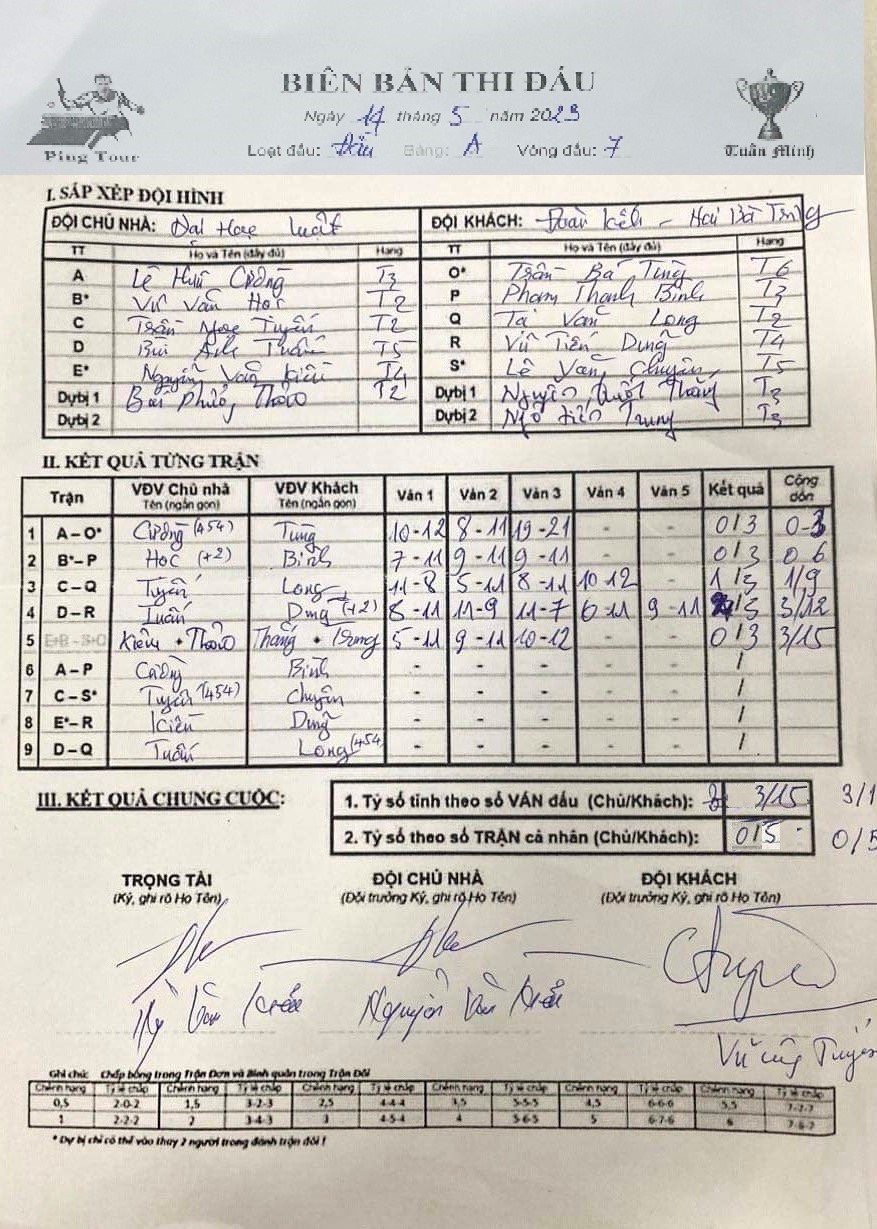 BIÊN BẢN THI ĐẤU
Ngày 14 tháng 5 năm 2023
Loạt đấu: Đầu Bảng: A Vòng đấu: 7
Ping Tour
Tuấn Minh
I. SẮP XẾP ĐỘI HÌNH
ĐỘI CHỦ NHÀ: Đại Học Luật ĐỘI KHÁCH: Đoàn Kết - Hai Bà Trưng
TT Họ và Tên (đầy đủ) Hạng TT Họ và Tên (đầy đủ) Hạng
A Lê Hữu Cường T3 O* Trần Bá Tùng T6
B* Vũ Văn Học T2 P Phạm Thanh Bình T3
C Trần Ngọc Tuyến T2 Q Tạ Văn Long T2
D Bùi Anh Tuấn T5 R Vũ Tiến Dũng T4
E* Nguyễn Văn Kiểu T4 S* Lê Văn Chuyên T5
Dự bị 1 Bùi Phước Thảo T2 Dự bị 1 Nguyễn Quốc Thắng T3
Dự bị 2 Dự bị 2 Ngô Tiến Trung T3
II. KẾT QUẢ TỪNG TRẬN
Trận VĐV Chủ nhà Tên (ngắn gọn) VĐV Khách Tên (ngắn gọn) Ván 1 Ván 2 Ván 3 Ván 4 Ván 5 Kết quả Cộng dồn
1 A – O* Cường (454) Tùng 10-12 8-11 19-21 - - 0/3 0-3
2 B* – P Học (+2) Bình 7-11 9-11 9-11 - - 0/3 0 6
3 C – Q Tuyến Long 11-8 5-11 8-11 10-12 - 1/3 1/9
4 D – R Tuấn Dũng (+2) 8-11 11-9 11-7 6-11 9-11 /3 3/12
5 Kiểu + Thảo Thắng + Trung 5-11 9-11 10-12 - - 0/3 3/15
6 A – P Cường Bình - - - - - /
7 C – S* Tuyến (454) Chuyên - - - - - /
8 E* – R Kiểu Dũng - - - - - /
9 D – Q Tuấn Long (454 - - - - - /
III. KẾT QUẢ CHUNG CUỘC:
1. Tỷ số tính theo số VÁN đấu (Chủ/Khách): 3/15 3/1
2. Tỷ số theo số TRẬN cá nhân (Chủ/Khách): 0/5 0/5
TRỌNG TÀI ĐỘI CHỦ NHÀ ĐỘI KHÁCH
(Ký, ghi rõ Họ Tên) (Đội trưởng Ký, ghi rõ Họ Tên) (Đội trưởng Ký, ghi rõ Họ Tên)
Văn Kiểu Nguyễn Văn Kiểu
Vũ Công Tuyến
Ghi chú: Chấp bóng trong Trận Đơn và Bình quân trong Trận Đôi
Chênh hạng Tỷ lệ chấp Chênh hạng Tỷ lệ chấp Chênh hạng Tỷ lệ chấp Chênh hạng Tỷ lệ chấp Chênh hạng Tỷ lệ chấp Chênh hạng Tỷ lệ chấp
0,5 2-0-2 1,5 3-2-3 2,5 4-4-4 3,5 5-5-5 4,5 6-6-6 5,5 7-7-7
1 2-2-2 2 3-4-3 3 4-5-4 4 5-6-5 5 6-7-6 6 7-8-7
* Dự bị chỉ có thể vào thay 2 người trong đánh trận đôi !